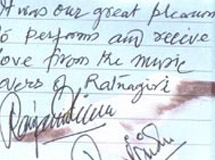 It was our great pleasure
to perform and recive
love from the music
overs of Ratnagiri